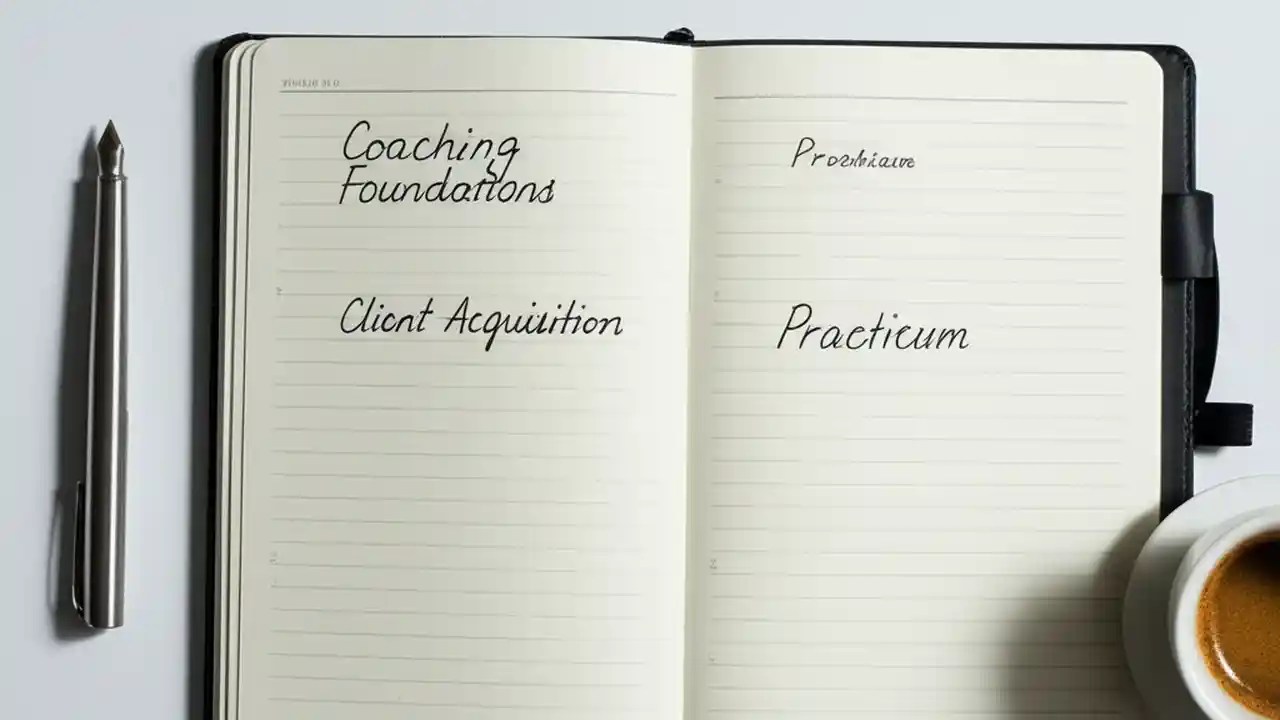 Coaching
Foundations
Client Acquisition
Practicum